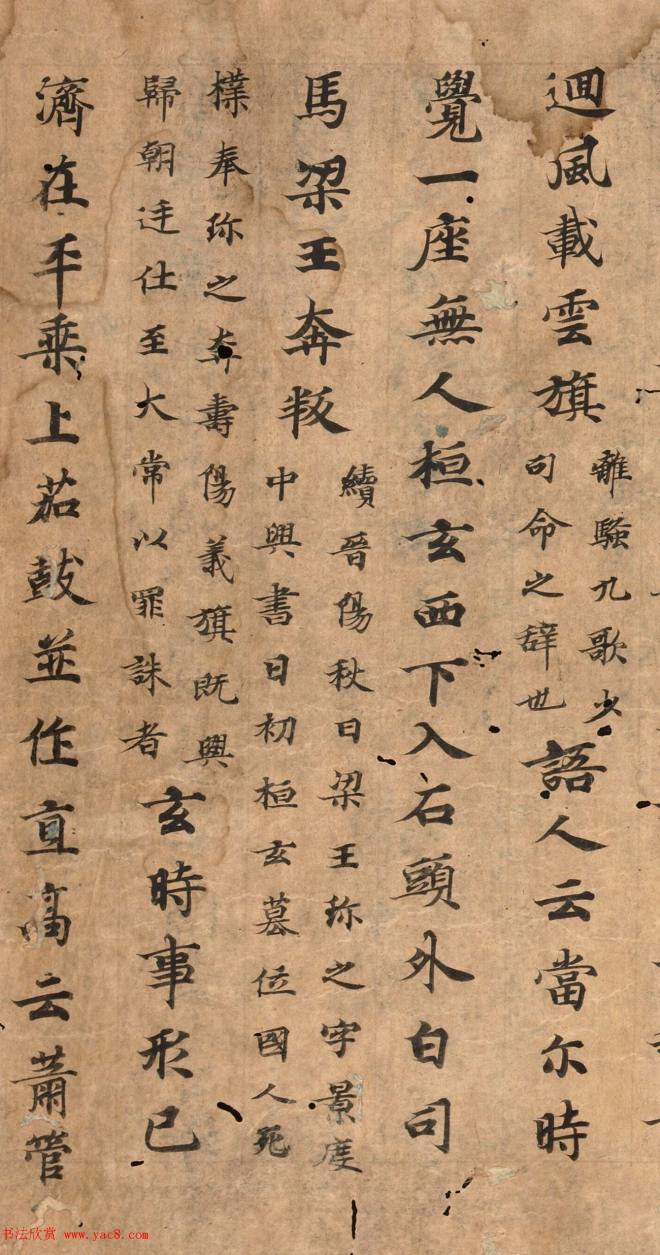 迴風載雲旗
離騷九歌少
司命之辞也
語人云當尒時
覺一座無人桓玄西下入石頭外白司
馬梁王奔叛
續晉陽秋曰梁王珎之字景度
中興書曰初桓玄墓位國人死
樸奉珎之奔壽陽義旗既興
歸朝廷仕至大常以罪誅者
玄時事形已
濟在平乗上茄鼓並作直高云蕭管
书法欣赏 www.yac8.com